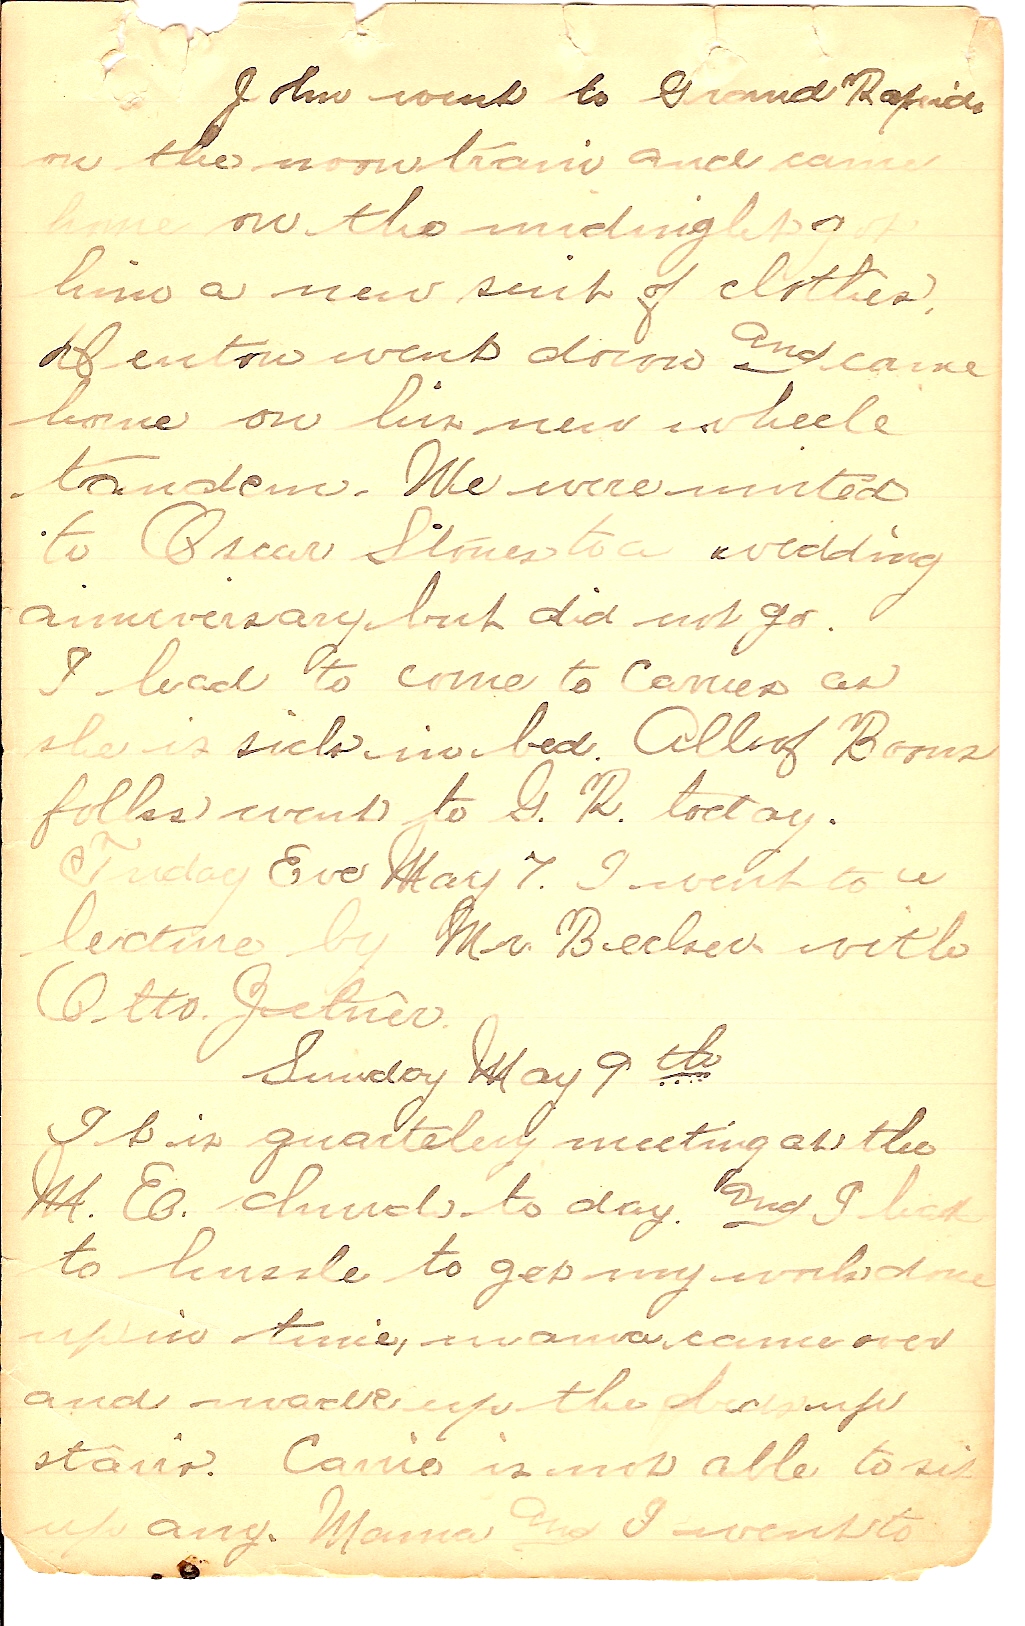 John went to Grand Rapids
on the noon train and came
home on the midnight got
him a new suit of clothes.
Benton went down and came
home on his new wheele
tandem. We were invited
to Oscar Stones to a wedding
anniversary but did not go.
I had to come to Carries as
she is sick in bed. All of Boons
folks went to G. R. today.
Friday Eve May 7. I went to a
lecture by Mr. Becker with
Otto.
Sunday May 9th
It is quartelery meeting at the
M. E. church to day. and I had
to hussle to get my work done
up in time, mama came over
and made up the beds up
stairs. Carrie is not able to sit
up any. Mama and I went to